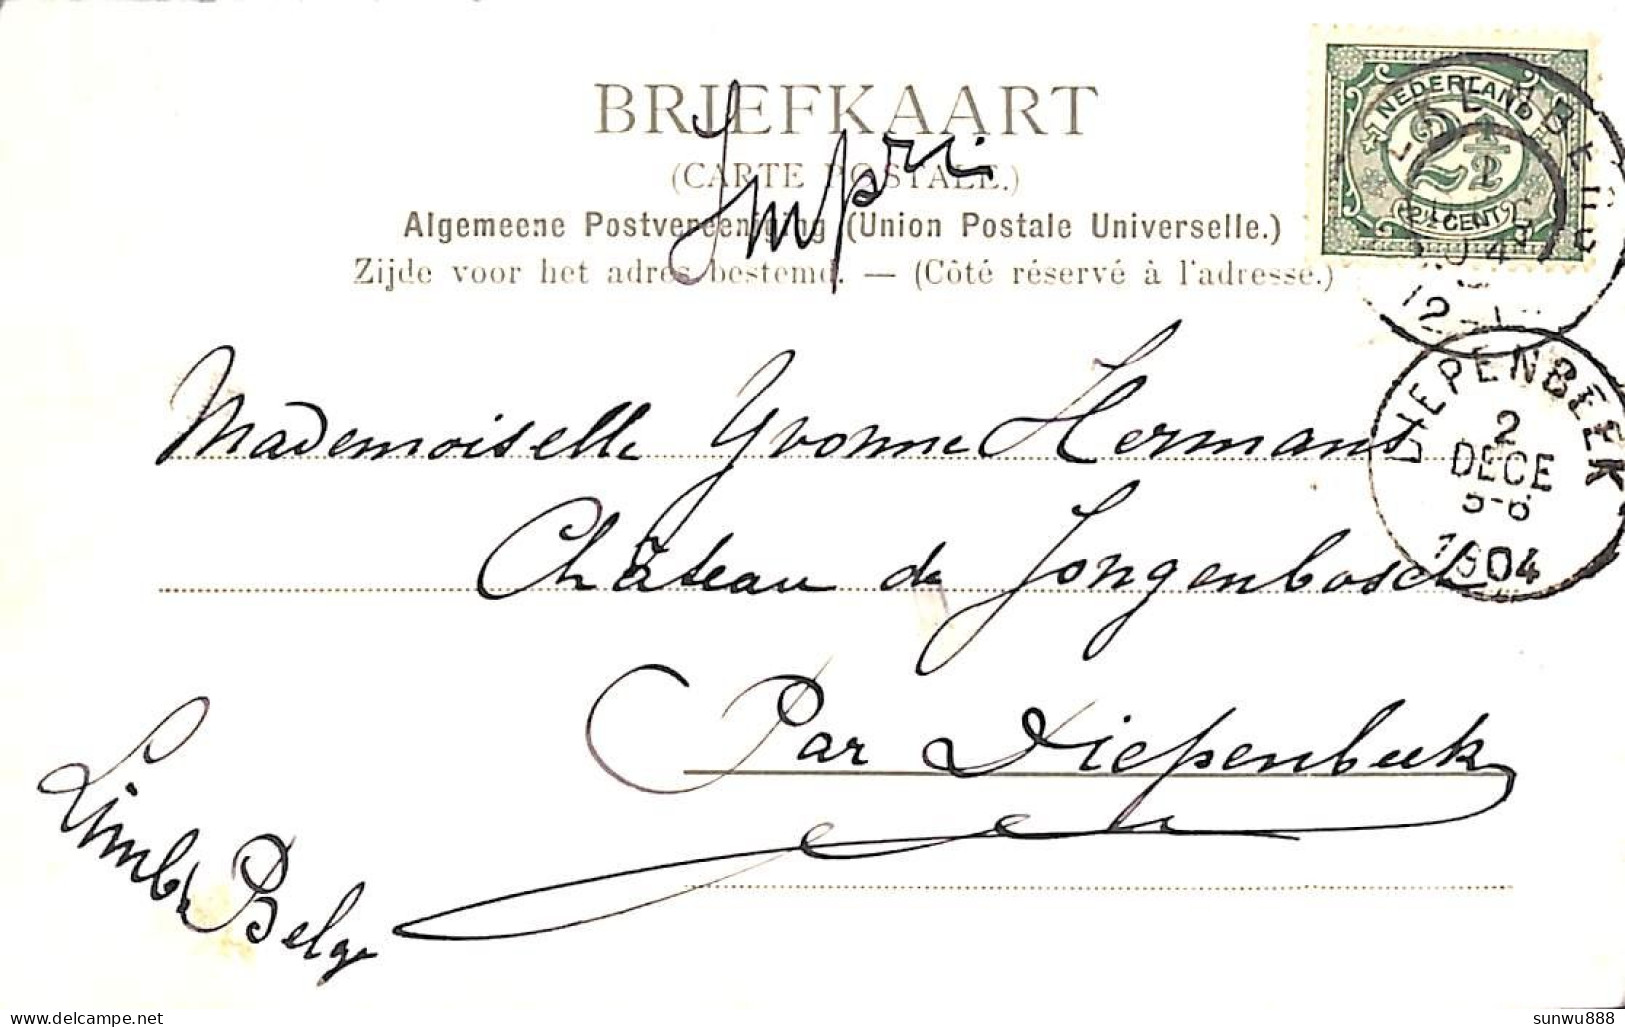 BRIEFKAART
(CARTE POSTALE.)
Impri
Algemeene Postvereeniging (Union Postale Universelle.)
Zijde voor het adres bestemd. — (Côté réservé à l'adresse.)
NEDERLAND
2½
2½ CENT
12-1
DIEPENBEEK
2
DECE
5-6
1904
Mademoiselle Yvonne Hermans
Château de Jongenbosch
Par Diepenbeek
Limb. Belge
sunwu888